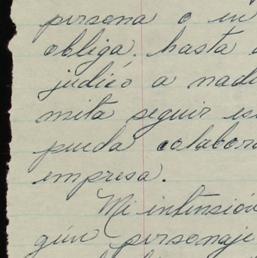 persona o en
obliga. hasta
judicó a nadi
mita seguir es
pueda colabor
empresa.
Mi intensión
gún personaje